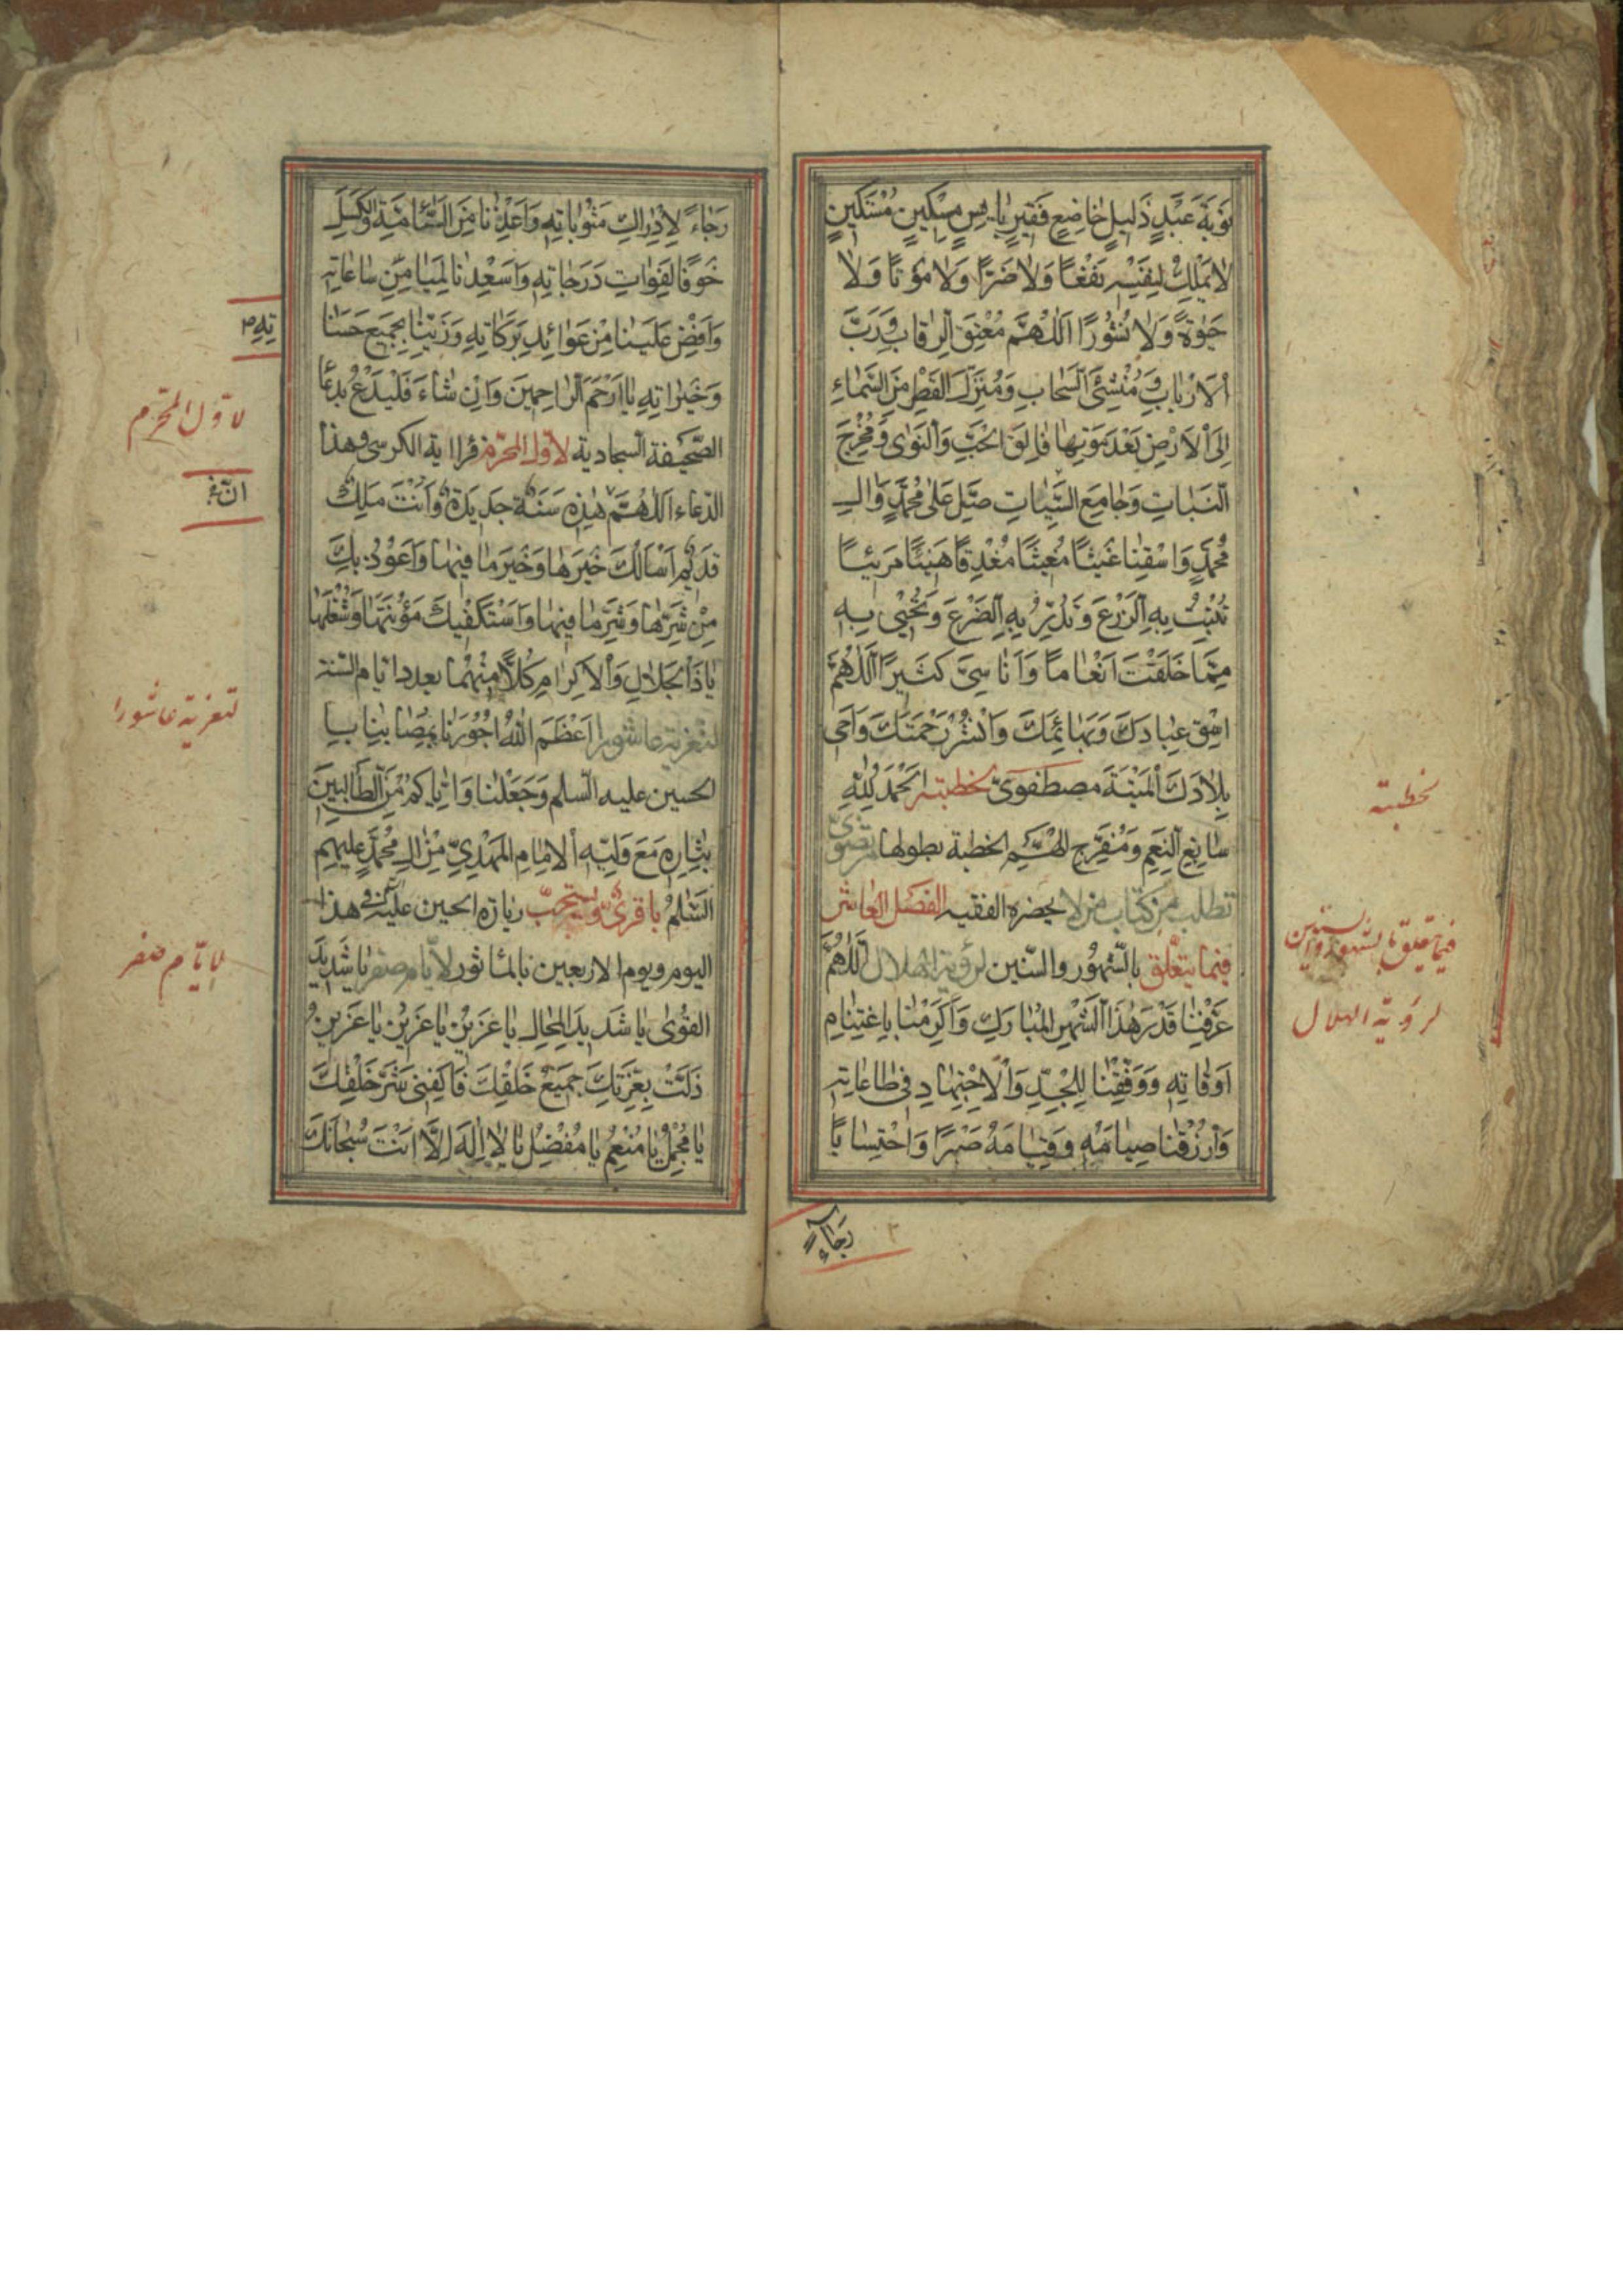 تَوْبَةَ عَبْدٍ ذَلِيلٍ خَاضِعٍ فَقِيرٍ بَائِسٍ مِسْكِينٍ مُسْتَكِينٍ
لَا يَمْلِكُ لِنَفْسِهِ نَفْعًا وَلَا ضَرًّا وَلَا مَوْتًا وَلَا
حَيٰوةً وَلَا نُشُورًا اَللّٰهُمَّ مُعْتِقَ الرِّقَابِ وَرَبَّ
الْاَرْبَابِ وَمُنْشِئَ السَّحَابِ وَمُنْزِلَ الْقَطْرِ مِنَ السَّمَاءِ
اِلَى الْاَرْضِ بَعْدَ مَوْتِهَا فَالِقَ الْحَبِّ وَالنَّوٰى وَمُخْرِجَ
النَّبَاتِ وَجَامِعَ الشَّتَاتِ صَلِّ عَلٰى مُحَمَّدٍ وَاٰلِ
مُحَمَّدٍ وَاسْقِنَا غَيْثًا مُغِيثًا مُغْدِقًا هَنِيئًا مَرِيئًا
تُنْبِتُ بِهِ الزَّرْعَ وَتُدِرُّ بِهِ الضَّرْعَ وَتُحْيِي بِهِ
مِمَّا خَلَقْتَ اَنْعَامًا وَاَنَاسِيَّ كَثِيرًا اَللّٰهُمَّ
اسْقِ عِبَادَكَ وَبَهَائِمَكَ وَانْشُرْ رَحْمَتَكَ وَاَحْيِ
بِلَادَكَ الْمَيْتَةَ مصطفويّ لخطبته اَلْحَمْدُ لِلّٰهِ
سَابِغِ النِّعَمِ وَمُفَرِّجِ الْهَمِّ الخطبة بطولها مرتضويّ
تطلب من كتاب من لا يحضره الفقيه الفصل العاشر
فيما يتعلّق بالشّهور والسّنين لرؤية الهلال اَللّٰهُمَّ
عَرِّفْنَا قَدْرَ هٰذَا الشَّهْرِ الْمُبَارَكِ وَاَكْرِمْنَا بِاغْتِنَامِ
اَوْقَاتِهِ وَوَفِّقْنَا لِلْجِدِّ وَالْاِجْتِهَادِ فِي طَاعَاتِهِ
وَارْزُقْنَا صِيَامَهُ وَقِيَامَهُ صَبْرًا وَاحْتِسَابًا
رَجَاءً
لخطبته
فيما يتعلق بالشهور والسنين
لرؤية الهلال
رَجَاءً لِاِدْرَاكِ مَثُوبَاتِهِ وَاَعِذْنَا مِنَ السَّاٰمَةِ وَالْكَسَلِ
خَوْفًا لِفَوَاتِ دَرَجَاتِهِ وَاَسْعِدْنَا لِمَيَامِنِ سَاعَاتِهِ
وَاَفِضْ عَلَيْنَا مِنْ عَوَائِدِ بَرَكَاتِهِ وَزَيِّنَّا بِجَمِيعِ حَسَنَا
وَخَيْرَاتِهِ يَا اَرْحَمَ الرَّاحِمِينَ وَاِنْ شَاءَ فَلْيَدْعُ بِدُعَاءِ
الصّحيفة السجادية لاوّل المحرّم قرا اية الكرسي وهذا
الدّعاء اَللّٰهُمَّ هٰذِهِ سَنَةٌ جَدِيدَةٌ وَاَنْتَ مَلِكٌ
قَدِيمٌ اَسْاَلُكَ خَيْرَهَا وَخَيْرَ مَا فِيهَا وَاَعُوذُ بِكَ
مِنْ شَرِّهَا وَشَرِّ مَا فِيهَا وَاَسْتَكْفِيكَ مَؤُنَتَهَا وَشُغْلَهَا
يَا ذَا الْجَلَالِ وَالْاِكْرَامِ كُلًّا مِنْهُمَا بعدد ايام السّنة
لتعزية عاشورا اَعْظَمَ اللّٰهُ اُجُورَنَا بِمُصَابِنَا بِ
الحسين عليه السّلم وَجَعَلَنَا وَاِيَّاكُمْ مِنَ الطَّالِبِينَ
بِثَارِهِ مَعَ وَلِيِّهِ الْاِمَامِ الْمَهْدِيِّ مِنْ اٰلِ مُحَمَّدٍ عَلَيْهِمُ
السَّلٰمُ باقريّ ويستحبّ زيارة الحسين عليه في هذا
اليوم ويوم الاربعين بالماثور لايّام صفر يَا شَدِيدَ
الْقُوٰى يَا شَدِيدَ الْمِحَالِ يَا عَزِيزُ يَا عَزِيزُ يَا عَزِيزُ
ذَلَّتْ بِعِزَّتِكَ جَمِيعُ خَلْقِكَ فَاكْفِنِي شَرَّ خَلْقِكَ
يَا مُجْمِلُ يَا مُنْعِمُ يَا مُفْضِلُ يَا لَا اِلٰهَ اِلَّا اَنْتَ سُبْحَانَكَ
تِهِ
لاوّل المحرّم
لتعزية عاشورا
لايّام صفر